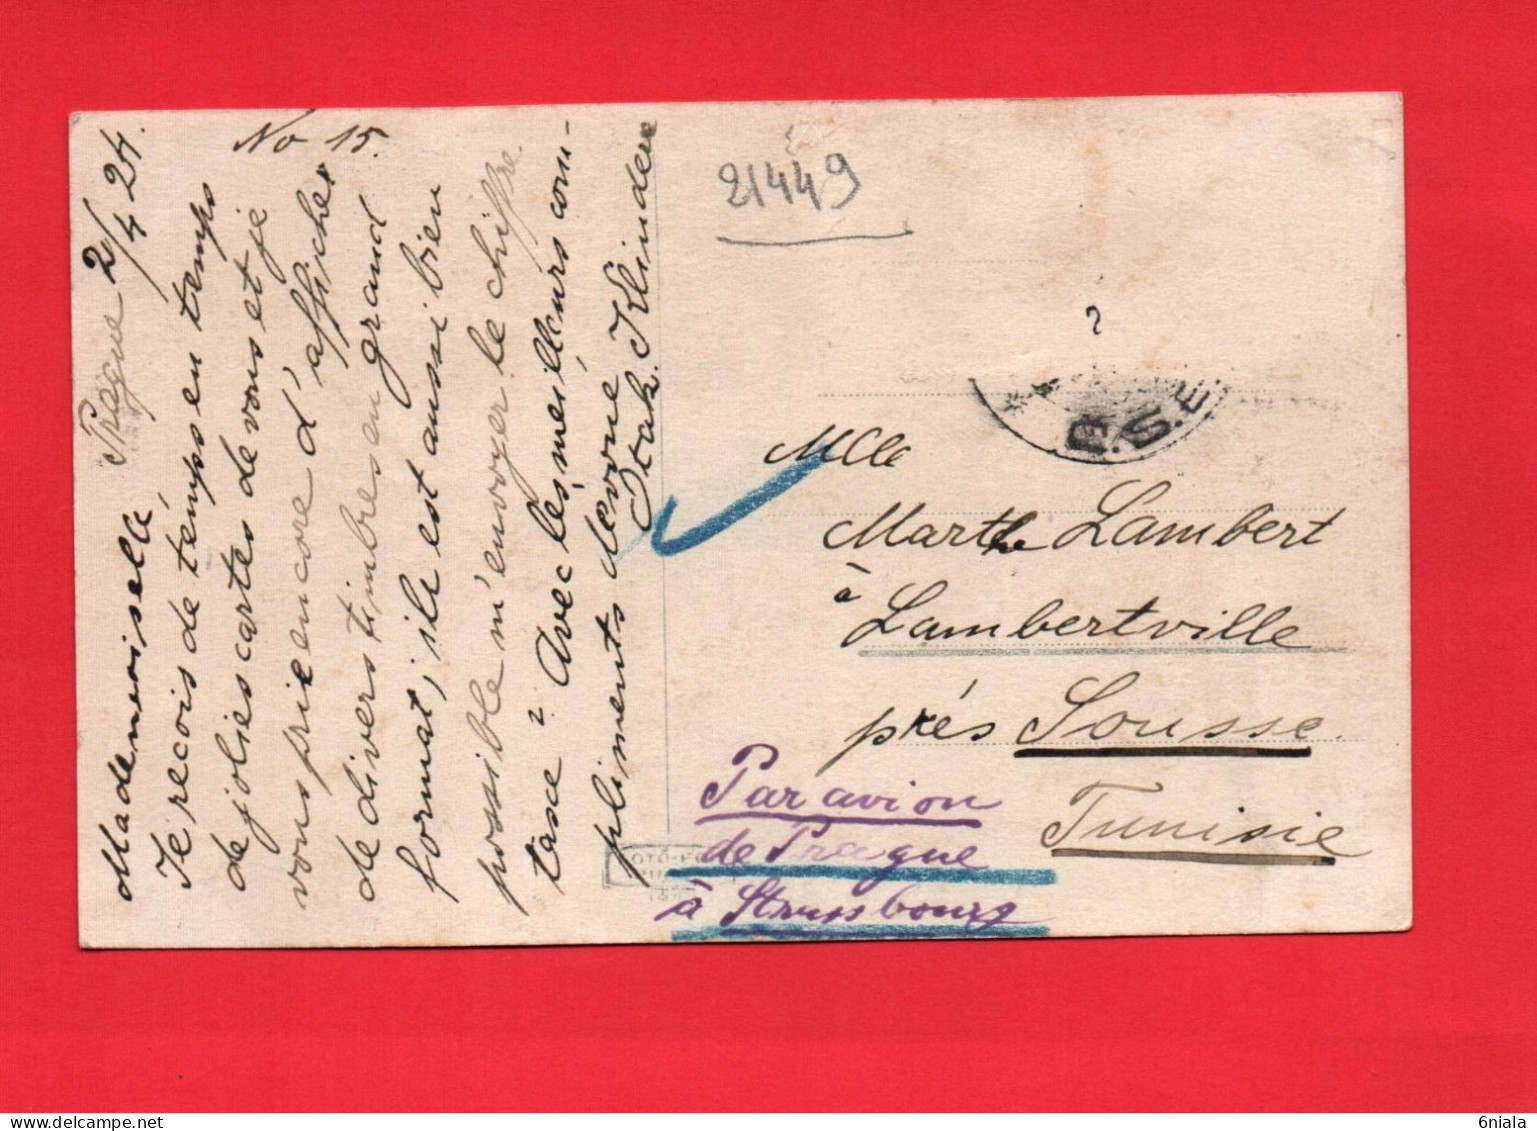 No 15.
Prague 2/4 24.
Mademoiselle
Je reçois de temps en temps
de jolies cartes de vous et je
vous prie encore d'afficher
de divers timbres en grand
format; ile est aussi bien
possible m'envoyer le chiffre
tasce? Avec les meilleurs com-
pliments de votre
Otak. Klindera
21449
?
R.S.E
Mlle
Marthe Lambert
à
Lambertville
prés Sousse.
Tunisie
Par avion
de Prague
à Strassbourg
6niala